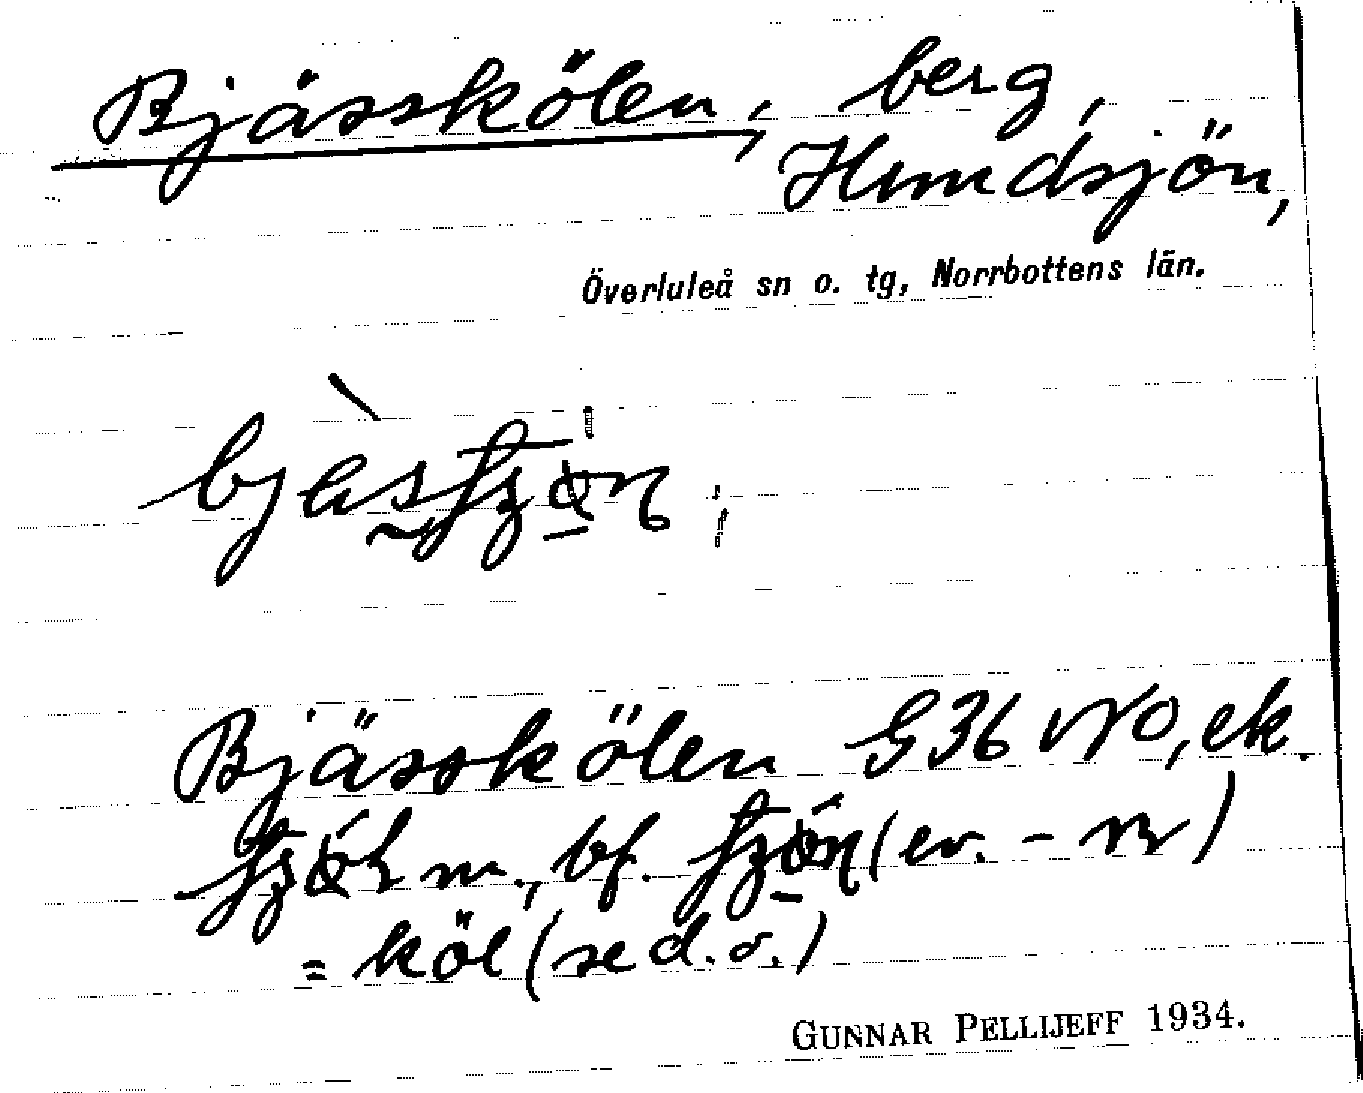 Bjässkölen, berg,
Hundsjön,
Överluleå sn o. tg, Norrbottens län.
Bjässkölen G36 NO, ek.
m., bf. (ev. -n)
= köl (se d. o.)
GUNNAR PELLIJEFF 1934.